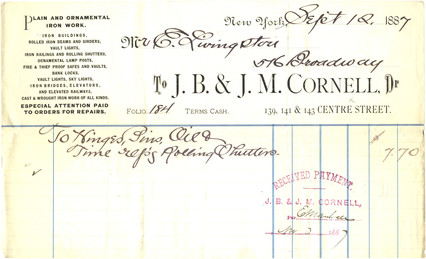 PLAIN AND ORNAMENTAL
IRON WORK.
IRON BUILDINGS,
ROLLED IRON BEAMS AND GIRDERS,
VAULT LIGHTS,
IRON RAILINGS AND ROLLING SHUTTERS,
ORNAMENTAL LAMP POSTS,
FIRE & THIEF PROOF SAFES AND VAULTS,
BANK LOCKS,
VAULT LIGHTS, SKY LIGHTS,
IRON BRIDGES, ELEVATORS,
AND ELEVATED RAILWAYS,
CAST & WROUGHT IRON WORK OF ALL KINDS.
ESPECIAL ATTENTION PAID
TO ORDERS FOR REPAIRS.
New York, Sept 12, 1887
Mr E. Livingston
516 Broadway
To J. B. & J. M. CORNELL, Dr
FOLIO 184 TERMS CASH. 139, 141 & 143 CENTRE STREET.
To Hinges, Pins, Oil &
Time Rep'g Rolling Shutters $7.70
RECEIVED PAYMENT.
J. B. & J. M. CORNELL,